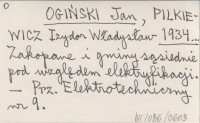 OGIŃSKI Jan, PILKIE-
WICZ Izydor Władysław 1934...
Zakopane i gminy sąsiednie
pod względem elektryfikacji.
— Prz. Elektrotechniczny
nr 9.